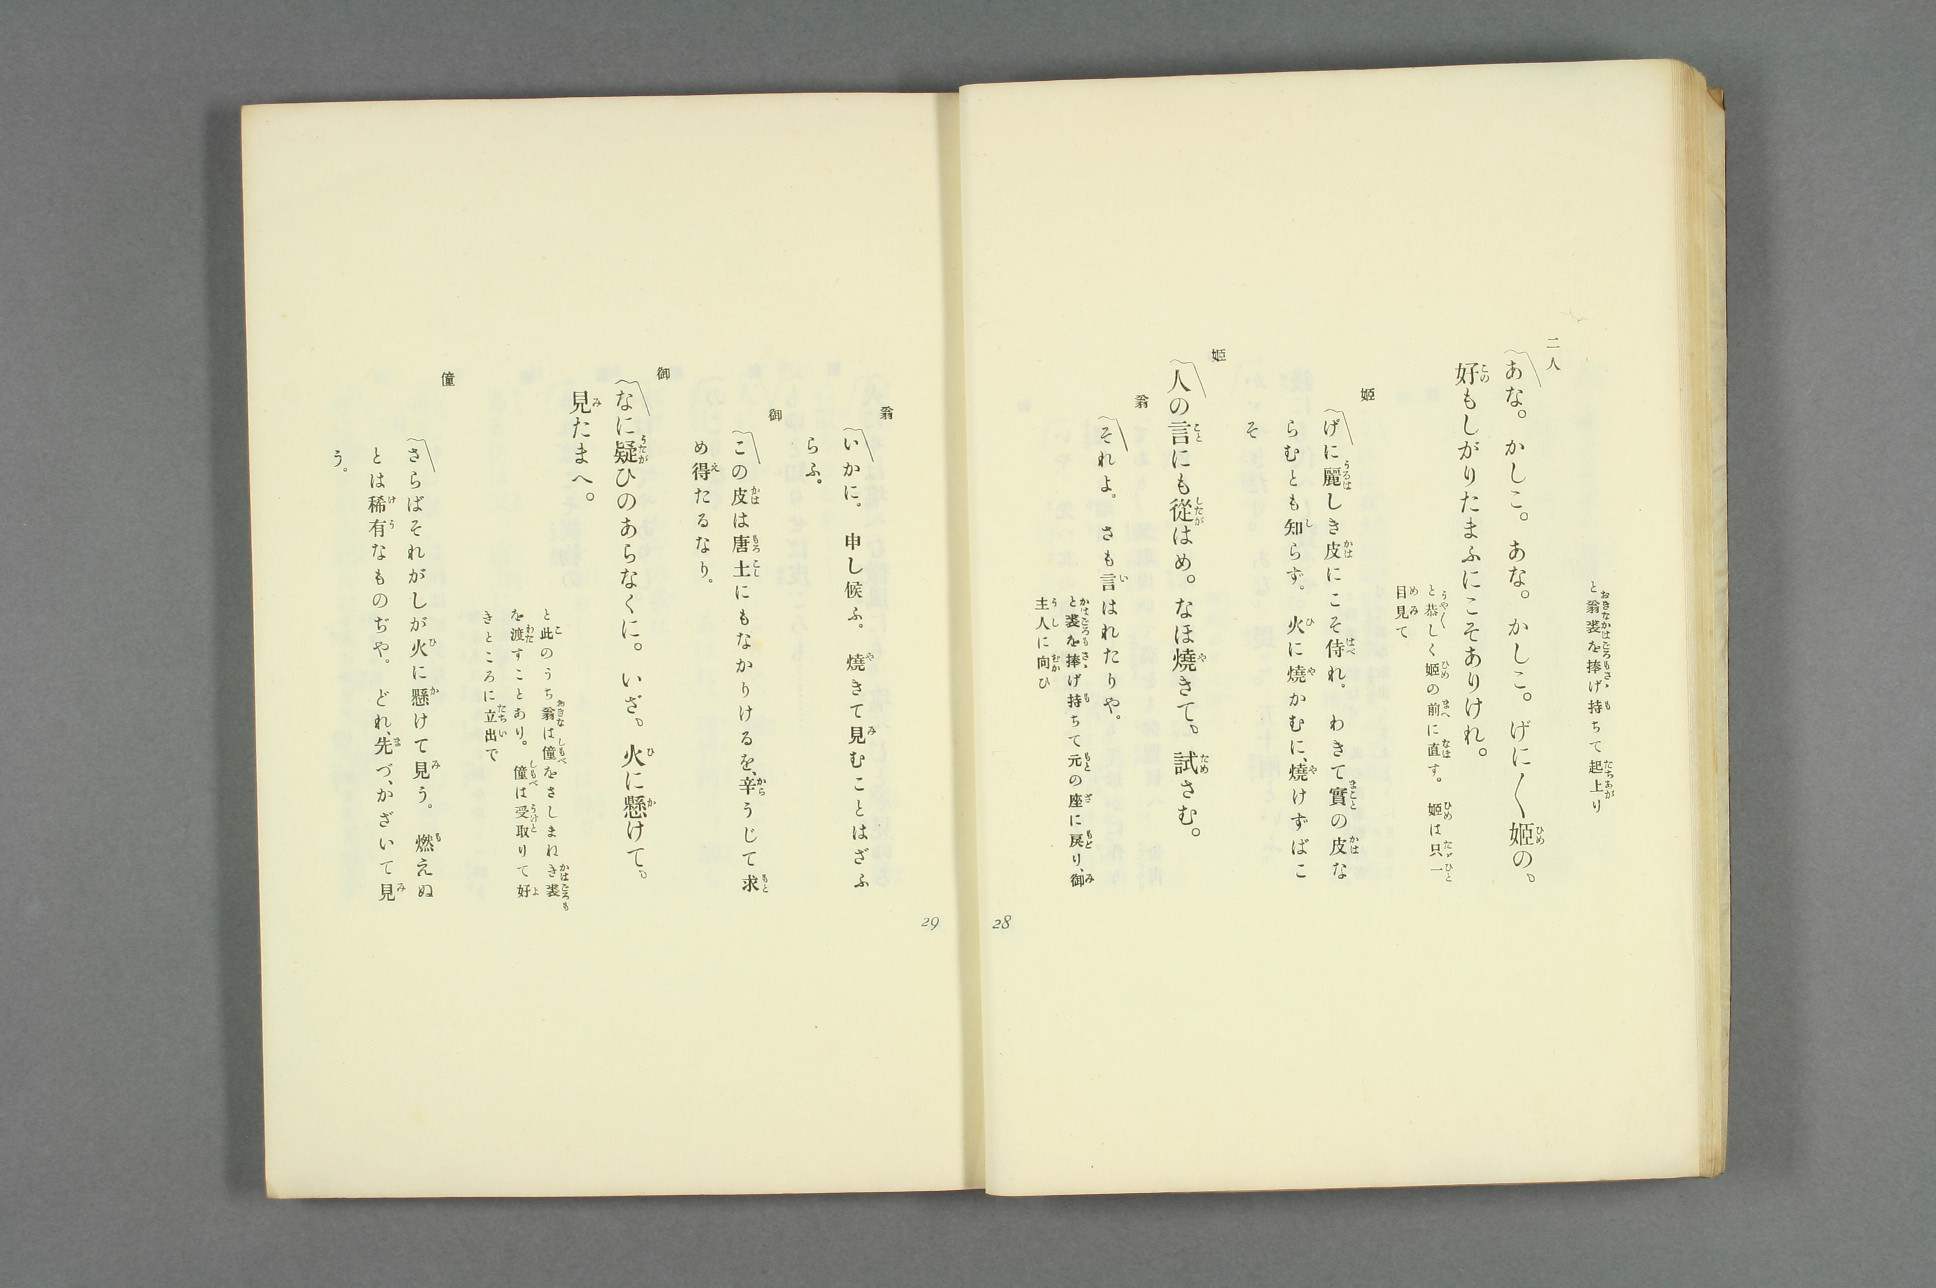 と翁裘を捧げ持ちて起上り
二人
あな。かしこ。あな。かしこ。げに〱姬の。
好もしがりたまふにこそありけれ。
と恭しく姬の前に直す。姬は只一
目見て
姬
げに麗しき皮にこそ侍れ。わきて實の皮な
らむとも知らず。火に燒かむに、燒けずばこ
そ
姬
人の言にも從はめ。なほ燒きて。試さむ。
翁
それよ。さも言はれたりや。
と裘を捧げ持ちて元の座に戻り、御
主人に向ひ
28
翁
いかに。申し候ふ。燒きて見むことはざふ
らふ。
御
この皮は唐土にもなかりけるを、辛うじて求
め得たるなり。
御
なに疑ひのあらなくに。いざ。火に懸けて。
見たまへ。
と此のうち翁は僮をさしまねき裘
を渡すことあり。僮は受取りて好
きところに立出で
僮
さらばそれがしが火に懸けて見う。燃えぬ
とは稀有なものぢや。どれ、先づ、かざいて見
う。
29